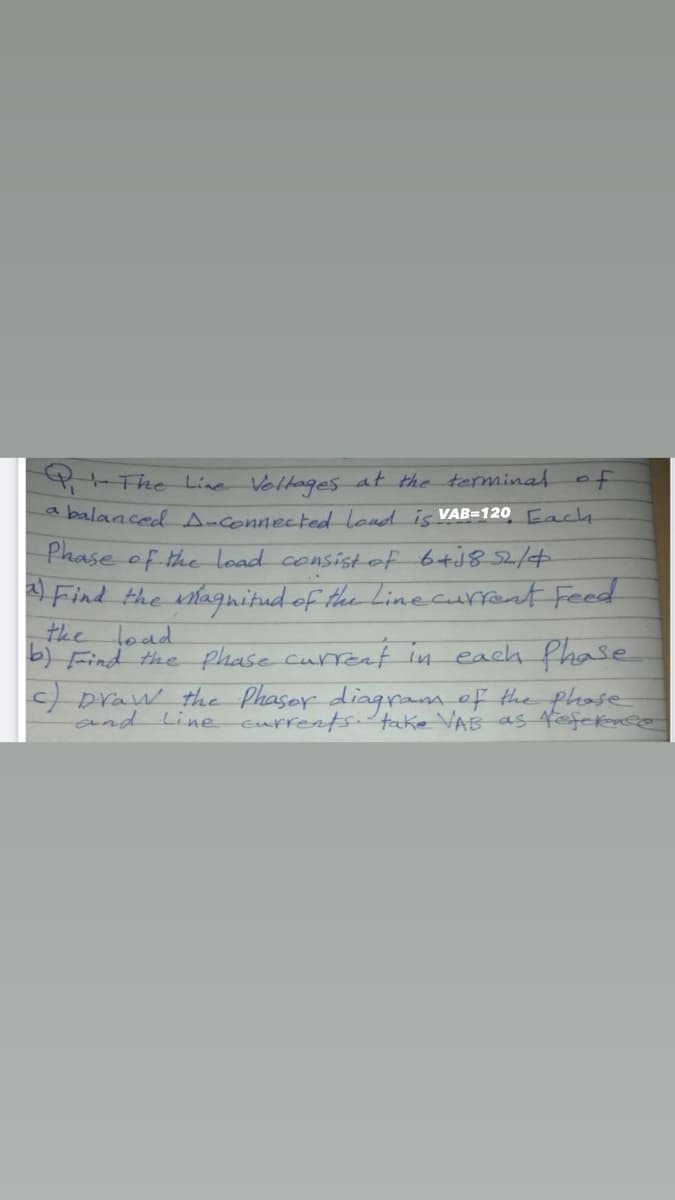 Q1:- The Line Voltages at the terminal of
a balanced Δ-connected load is VAB=120. Each
Phase of the load consist of 6+j8 Ω/ф
a) Find the magnitud of the Line current Feed
the load
b) Find the Phase current in each Phase
c) Draw the Phasor diagram of the phase
and Line currents. take VAB as reference